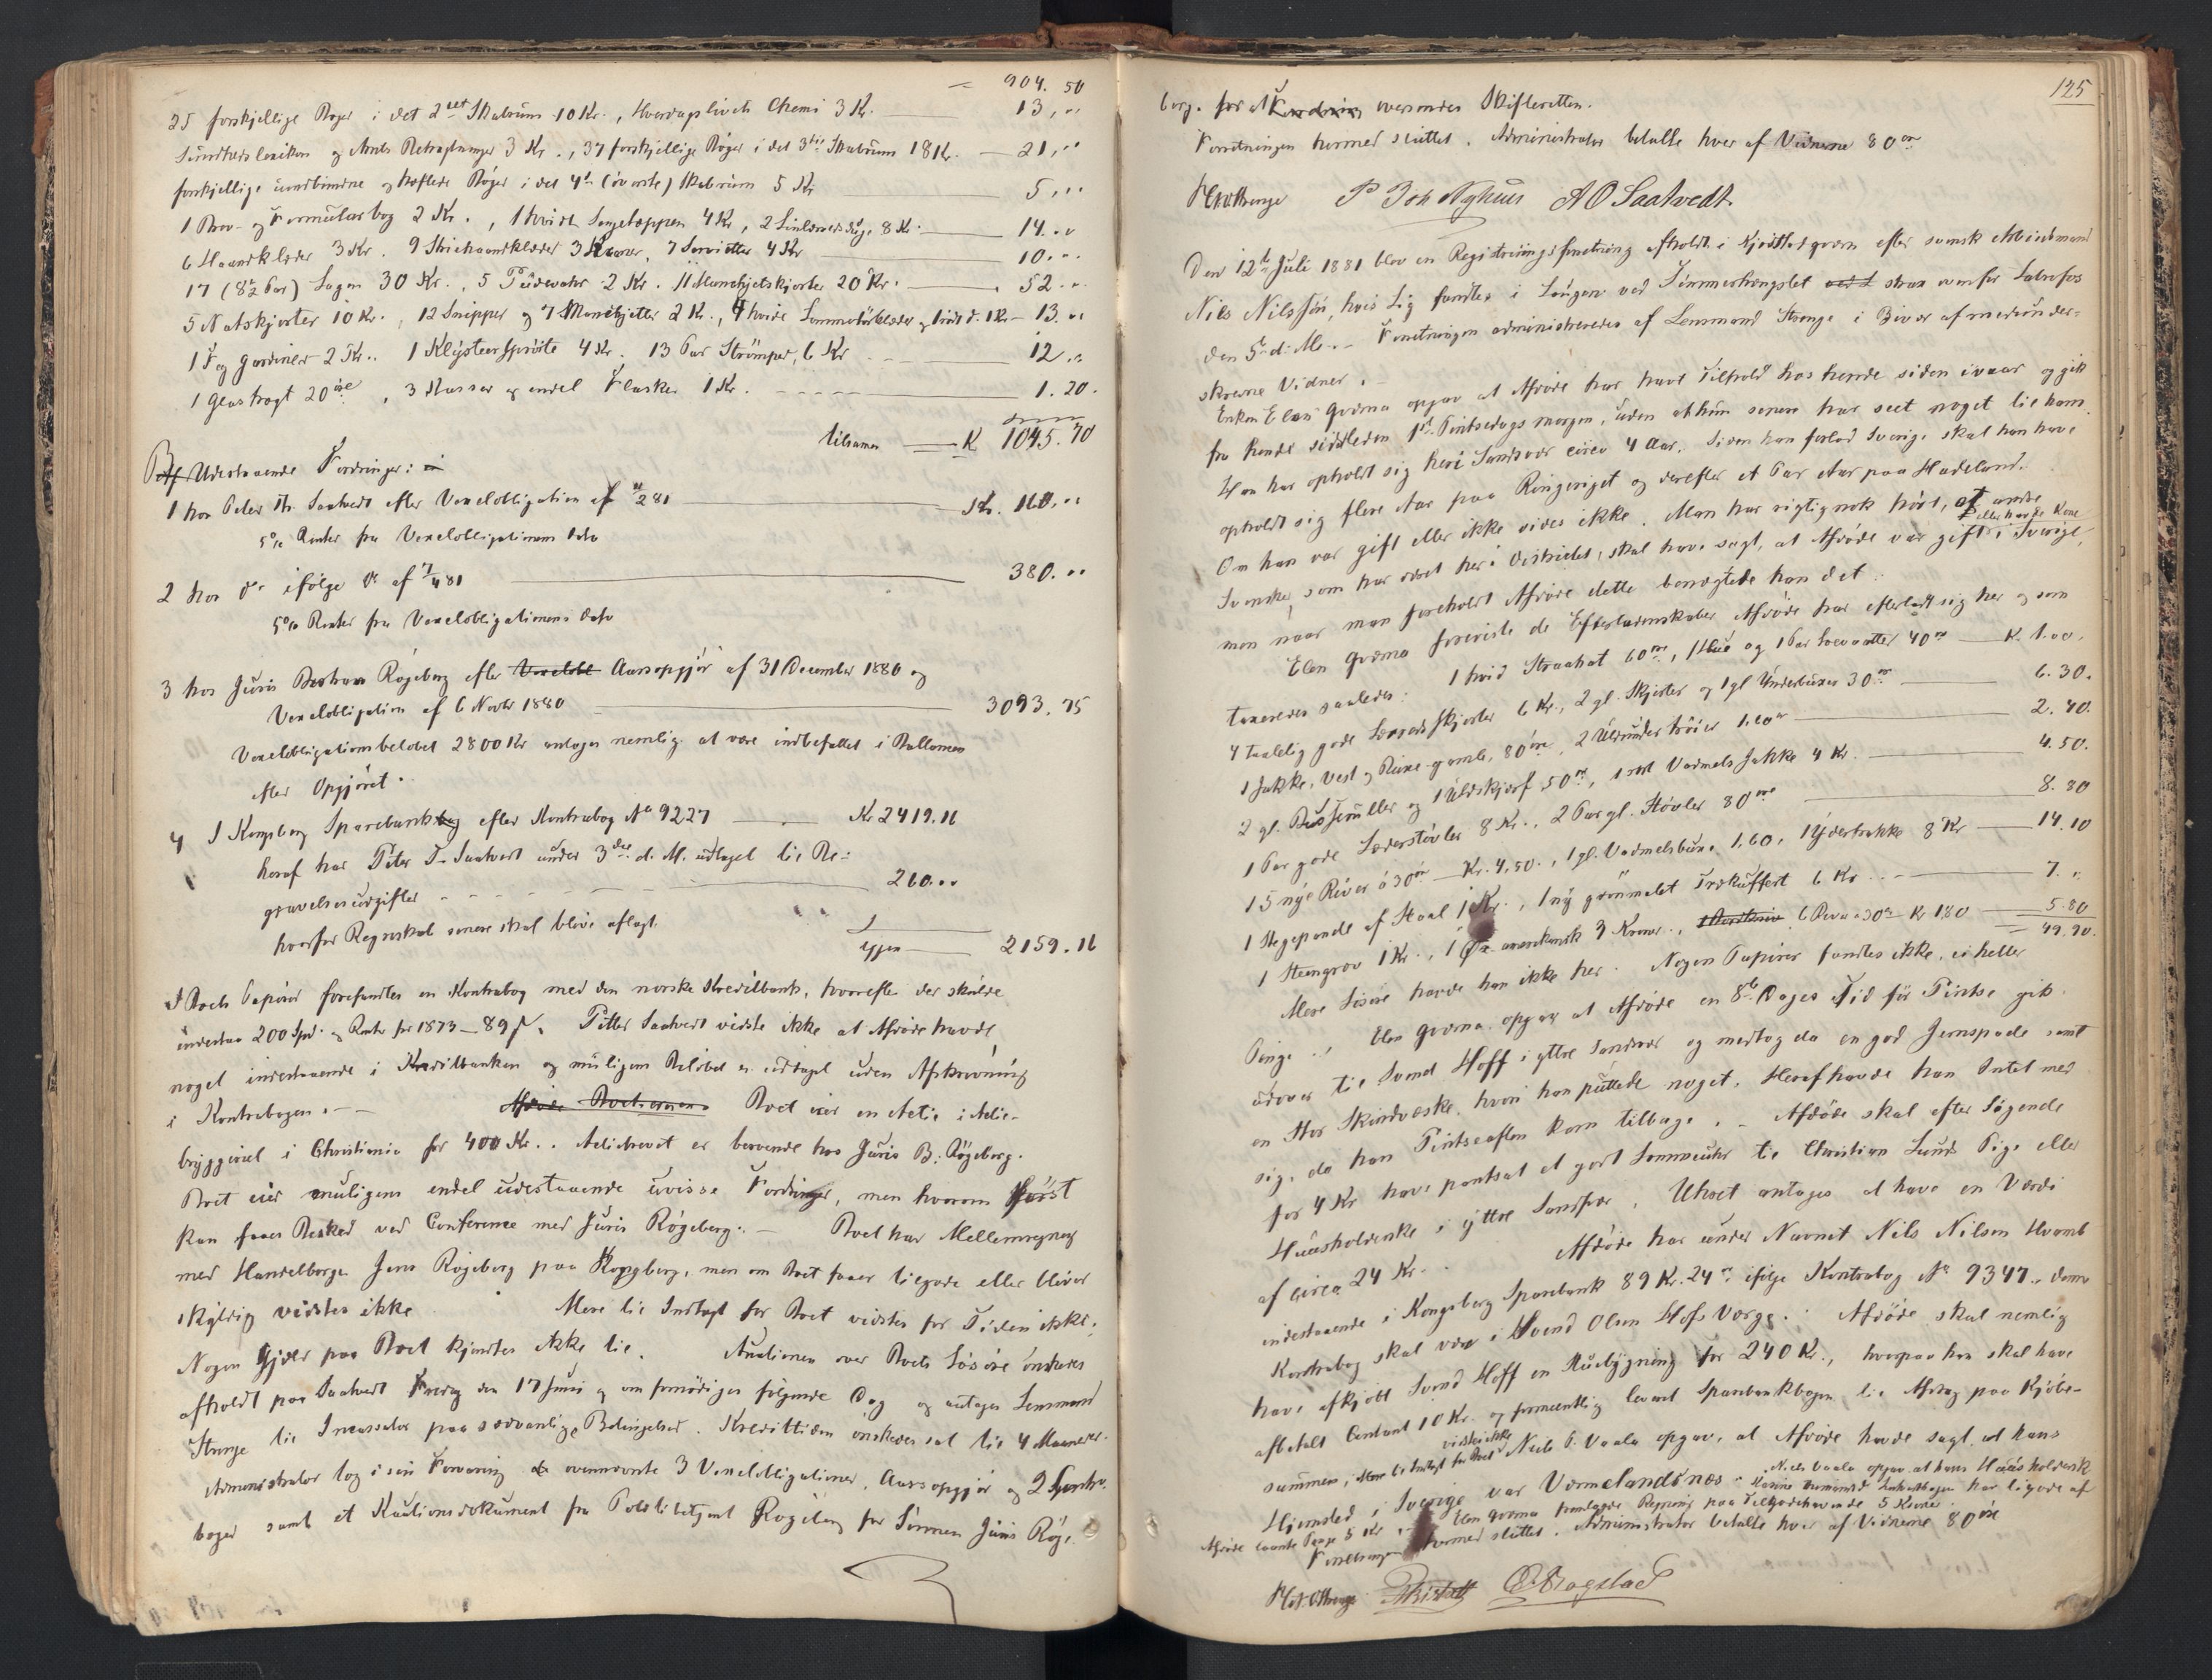 904. 50
25 forskjellige Bøger i det 2det Skabrum 10 Kr., Hverdagslivets Chemi 3 Kr. 13 ,"
Sundhedslexikon og Betragtninger 3 Kr., 37 forskjellige Bøger i det 3die Skabrum 18 Kr. — 21,"
forskjellige uindbundne og heftede Bøger i det 4de (øverste) Skabrum 5 Kr — 5,"
1 Brev- og Formularbog 2 Kr., 1 hvidt Sengetæppe 4 Kr, 2 8 Kr. — 14. "
6 Haandklæder 3 Kr. 9 3 Kroner, 7 Servietter 4 Kr — 10. "
17 (8½ Par) Lagen 30 Kr., 5 Pudevahr 2 Kr. 11 Mansjetskjorter 20 Kr. — 52. "
5 Natskjorter 10 Kr., 12 Snipper og 7 Manchjetter 2 Kr., 4 hvide 1 Kr — 13. "
1 Fag Gardiner 2 Kr.. 1 Klysteersprøite 4 Kr. 13 Par Strømper, 6 Kr — 12 "
1 Glastragt 20 øre, 3 Kasser og endel Flasker 1 Kr. — 1. 20.
tilsammen — K 1045. 70
Udestaaende Fordringer:
1 hos Peder Th. Saatvedt efter Vexelobligation af 281 — Kr. 160. "
5% Renter fra Vexelobligationens Dato
2 hos do ifølge do af 7/4 81 — 380. "
5% Renter fra Vexelobligationens Dato
3 hos Juris Røgeberg efter Aarsopgjør af 31 December 1880 og
Vexelobligation af 6 Novbr 1880 — 3093. 75
Vexelobligationsbeløbet 2800 Kr antages nemlig at være indbefattet i Ballancen
efter Opgjøret.
4 I Kongsberg Sparebank efter Kontrabog No 9227 — Kr 2419. 16
heraf har Peter T. Saatvedt under 3die d. M. udtaget til Be-
gravelsesudgifter — 260. "
hvorfor Regnskab senere skal blive aflagt.
igjen — 2159. 16
I Boets Papirer forefandtes en Kontrabog med den norske Kreditbank, hvorefter der skulde
indestaa 200 Spd. og Rente for 1873 — 89 Petter Saatvedt vidste ikke at Afdøde havde
noget indestaaende i Kreditbanken og muligens Beløbet er udtaget uden Afskrivning
i Kontrabogen. — Boet eier en Actie i Actie-
bryggeriet i Christiania for 400 Kr.. Actiebrevet er beroende hos Juris B. Røgeberg.
Boet eier muligens endel udestaaende uvisse Fordringer, men hvorom først
kan faaes Besked ved Conference med Juris Røgeberg. — Boet har Mellemregning
med Handelsborger Jens Røgeberg paa Kongsberg, men om Boet faaer tilgode eller bliver
skyldig vidstes ikke. Mere til Indtægt for Boet vidstes for Tiden ikke.
Nogen Gjæld paa Boet kjendtes ikke til. Auctionen over Boets Løsøre ønskedes
afholdt paa Saatvedt Fredag den 17 Juni og om fornødiges følgende Dag og antages Lensmand
Strenge til Incassator paa sædvanlige Betingelser. Kredittiden ønskedes sat til 4 Maaneder.
Administrator tog i sin Forvaring ovennævnte 3 Vexelobligationer, Aarsopgjør og 2 Contra-
bøger samt et Kautionsdokument fra Røgeberg for Sønnen Juris Røge-
125
berg. for at oversendes Skifteretten.
Forretningen hermed sluttet. Administrator betalte hver af Vidnerne 80 øre
Strenge P Joh Nyhuus A O Saatvedt.
Den 12te Juli 1881 blev en Registreringsforretning afholdt i efter svensk Arbeidsmand
Nils Nilssøn, hvis Lig fandtes i Laugen ved Tømmerhengslet strax ovenfor Labrofos
den 5te d. M. — Forretningen administreredes af Lensmand Strenge i Bivær af medunder-
skrevne Vidner. —
Enken Elen opgav at Afdøde har havt Tilhold hos hende siden ivaar og gik
fra hende sidstleden 1st Pintsedags morgen, uden at hun senere har seet noget til ham.
Han har opholdt sig heri Sandsvær circa 4 Aar. Siden han forlod Sverige skal han have
opholdt sig flere Aar paa Ringeriget og derefter et Par Aar paa Hadeland.
Om han var gift eller ikke vides ikke. Man har rigtignok hørt, at andre
Svensker, som har været her i Distriktet, skal have sagt, at Afdøde var gift eller havde Kone i Sverige,
men naar man foreholdt Afdøde dette benægtede han det.
Elen foreviste de Efterladenskaber Afdøde har efterladt sig her og som
taxeredes saaledes: 1 hvid Straahat 60 øre, 1 Hue og 1 Par 40 øre — K. 1.00.
4 taalelig gode Lærredsskjorter 6 Kr., 2 gl. Skjorter og 1 gl Underbuxer 30 øre — 6. 30.
1 Jakke, Vest og Buxe gamle, 80 øre, 2 Uldundertrøier 1.60 øre — 2. 40.
2 gl. og 1 Uldskjærf 50 øre, 1 Vadmels Jakke 4 Kr. — 4. 50.
1 Par gode Læderstøvler 8 Kr., 2 Par gl. Støvler 80 øre — 8. 80
15 nye River à 30 øre — Kr. 4.50., 1 gl. Vadmelsbuxe 1.60, 1 Yderfrakke 8 Kr — 14. 10
1 Stegepande af Staal 1 Kr., 1 ny grønmalet Trækuffert 6 Kr. — 7. "
1 Steengrev 1 Kr., 1 Øx amerikansk 3 Kroner., 6 River à 30 øre Kr 1.80 — 5. 80
49. 90.
Mere Løsøre havde han ikke her. Nogen Papirer fandtes ikke, ei heller
Penge. Elen opgav at Afdøde en 8te Dages Tid før Pintse gik
udover til Svend Hoff i yttre Sandsvær og medtog da en god Jernspade samt
en stor Skindvæske, hvori han puttede noget. Heraf havde han Intet med
sig, da han Pintseaften kom tilbage. — Afdøde skal efter Sigende
for 4 Kr have pantsat et godt Lommeuhr til Christian Lunds Pige eller
Huusholderske i yttre Sandsvær. Uhret antages at have en Værdi
af circa 24 Kr. Afdøde har under Navnet Nils Nilsen Hvamb
indestaaende i Kongsberg Sparebank 89 Kr. 24 øre ifølge Kontrabog No 9347., denne
Kontrabog skal være i Svend Olsen Hofs Værge. Afdøde skal nemlig
have afkjøbt Svend Hoff en Huusbygning for 240 Kr., hvorpaa han skal have
afbetalt Contant 10 Kr. og formeentlig leveret Sparebankbogen til Afdrag paa Kjøbe-
summen, Mere til Indtægt for Boet vidstes ikke. Niels P. Vaala opgav, at Afdøde havde sagt, at hans
Hjemsted i Sverige var Værmelandsnæs. Niels Vaala opgav at hans Huusholderske
har tilgode af
Afdøde laante Penge 5 Kr. Elen fremlagde Regning paa Tilgodehavende 5 Kroner.
Forretningen hermed sluttet. Administrator betalte hver af Vidnerne 80 øre
Strenge